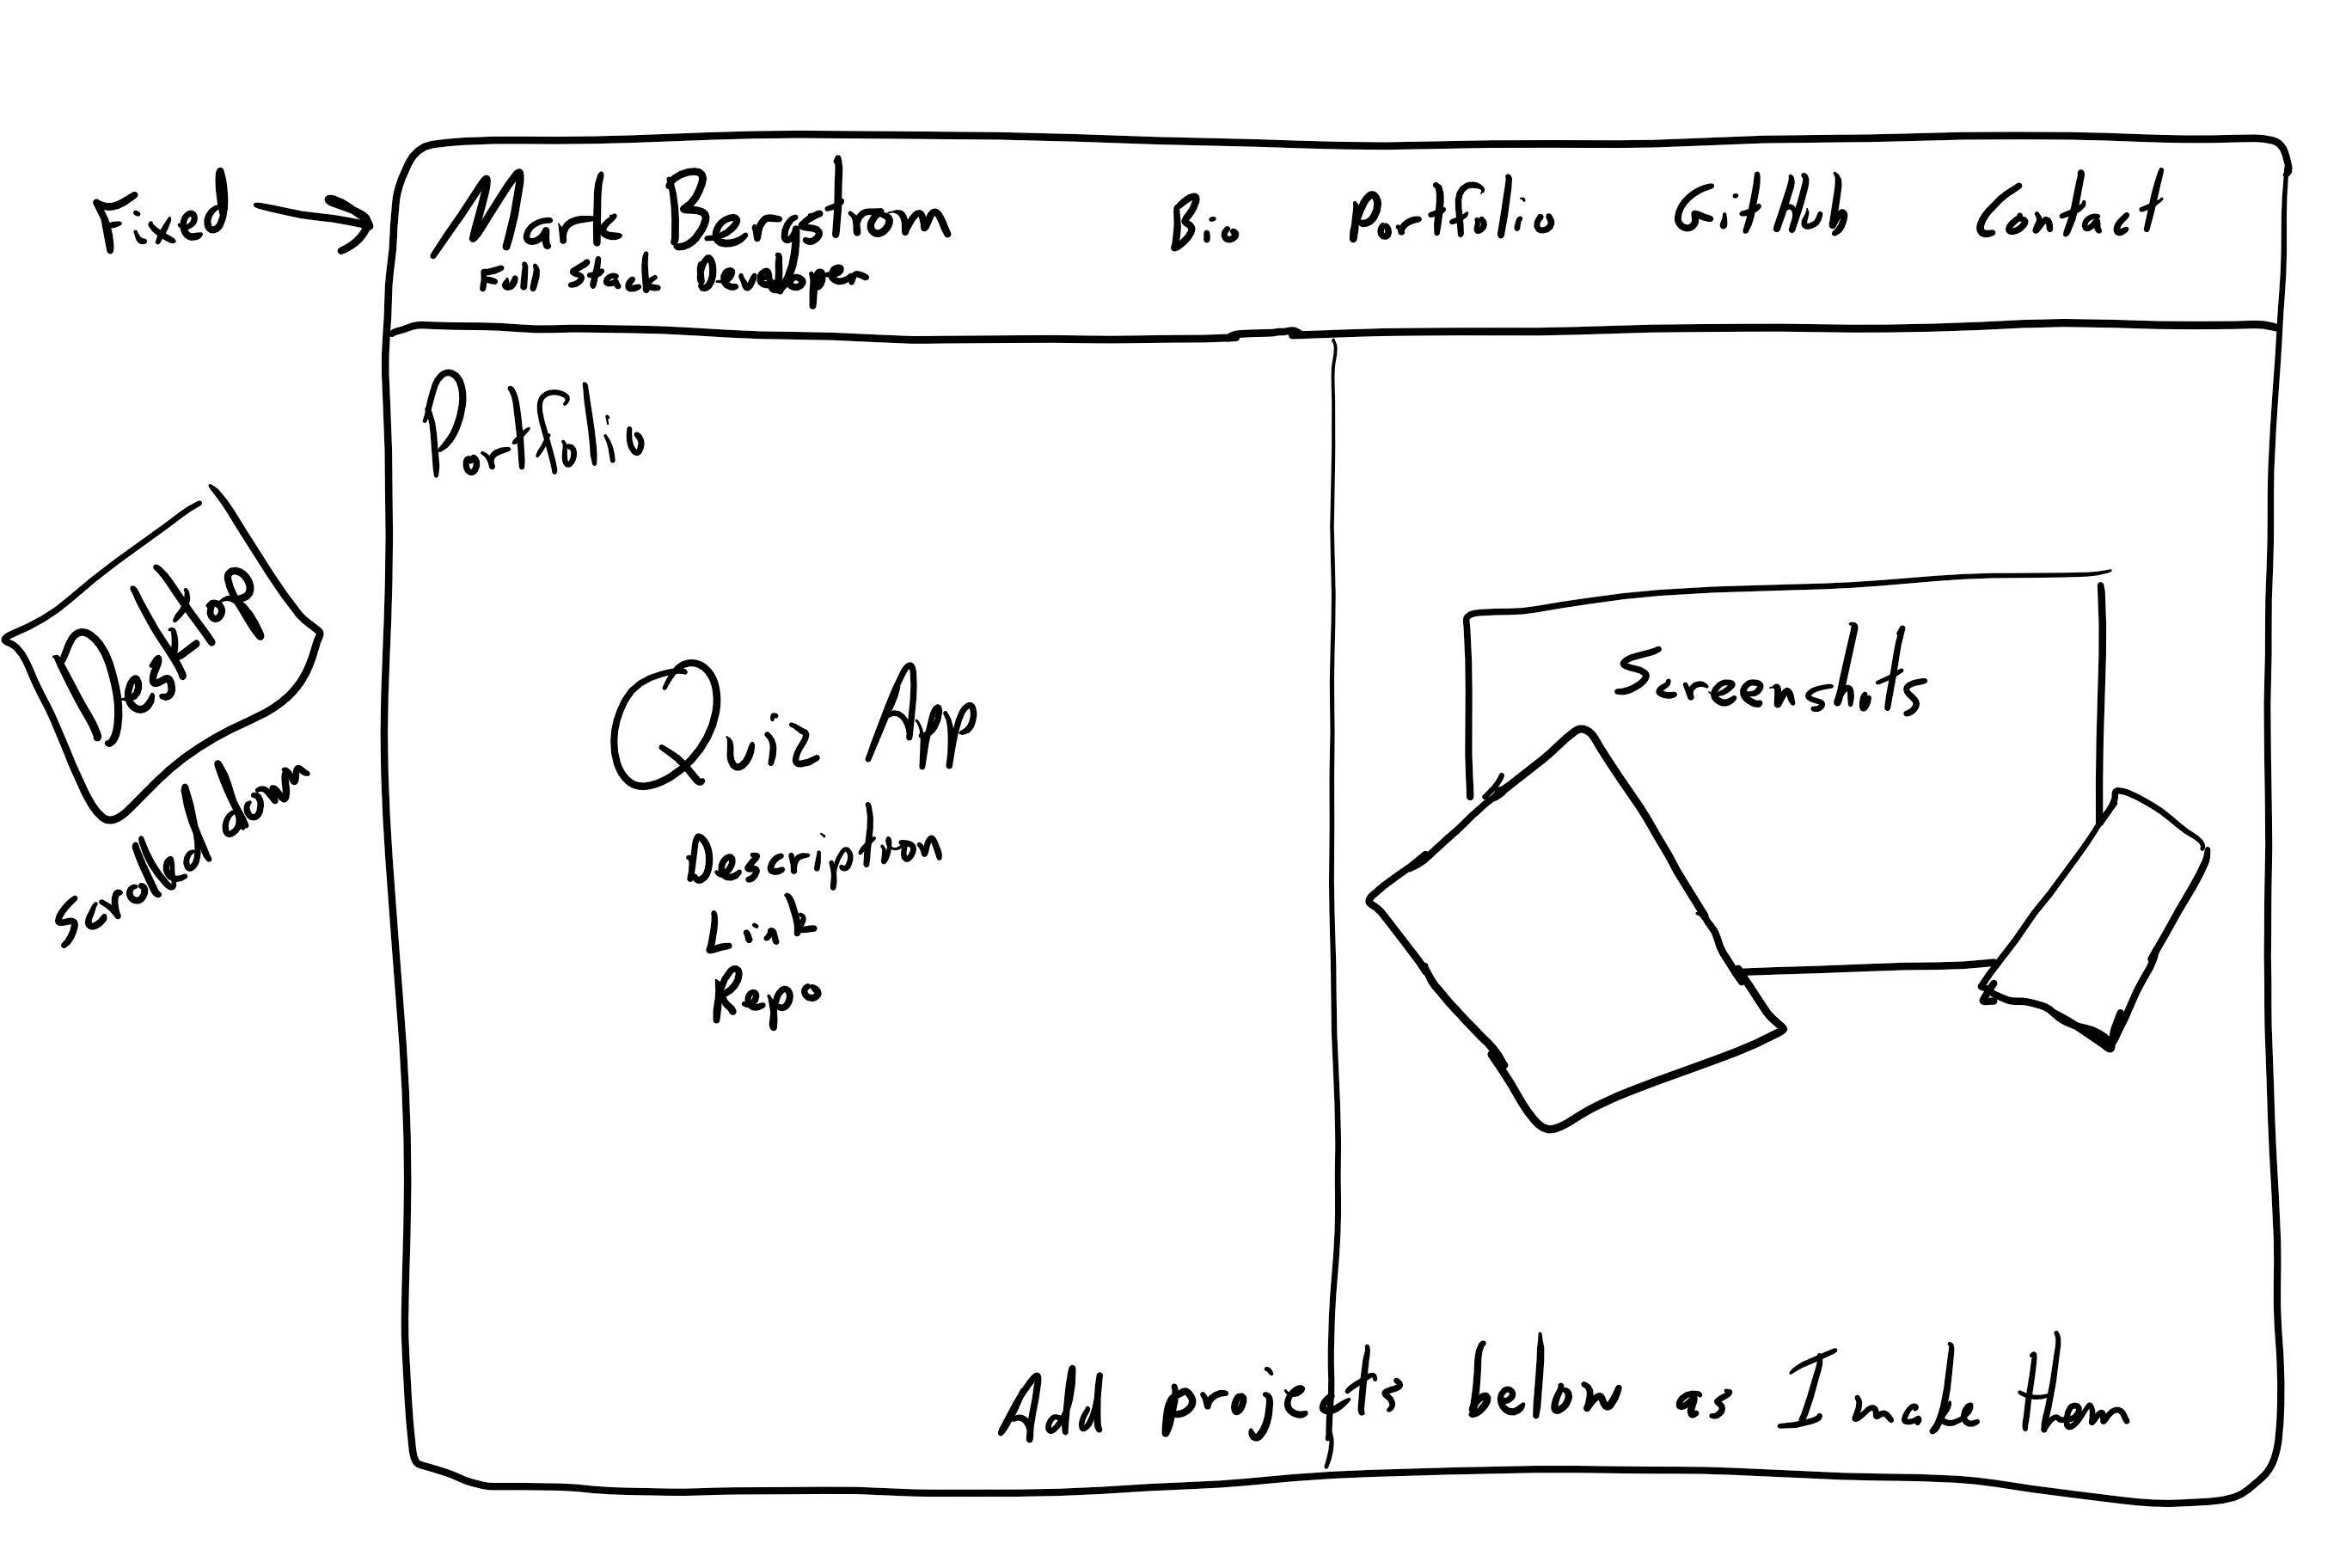 Fixed
Mark Bengtsson
Full Stack Developer
Bio
Portfolio
GitHub
Contact
Portfolio
Desktop
Scrolled down
Quiz App
Description
Link
Repo
Screenshots
Add projects below as I make them